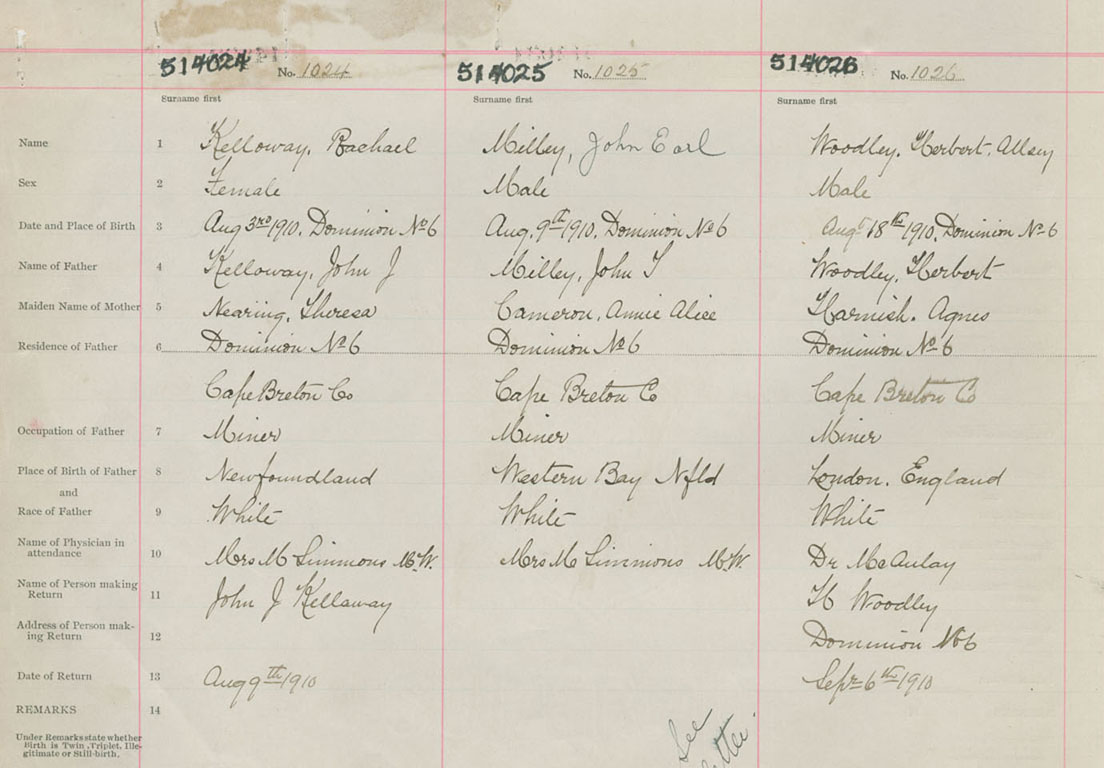 514024 No. 1024 514025 No. 1025 514026 No. 1026
Surname first Surname first Surname first
Name 1 Kelloway, Rachael Milley, John Earl Woodley, Herbert. Allsey
Sex 2 Female Male Male
Date and Place of Birth 3 Aug 3rd 1910. Dominion No 6 Aug. 9th 1910. Dominion No 6 Augt 18th 1910. Dominion No 6
Name of Father 4 Kelloway, John J Milley, John T Woodley, Herbert
Maiden Name of Mother 5 Nearing, Theresa Cameron, Annie Alice Harnish. Agnes
Residence of Father 6 Dominion No 6 Dominion No 6 Dominion No 6
Cape Breton Co Cape Breton Co Cape Breton Co
Occupation of Father 7 Miner Miner Miner
Place of Birth of Father 8 Newfoundland Western Bay Nfld London. England
and
Race of Father 9 White White White
Name of Physician in
attendance 10 Mrs M Simmons M.W. Mrs M Simmons M.W. Dr McAulay
Name of Person making
Return 11 John J Kellaway H Woodley
Address of Person mak-
ing Return 12 Dominion No 6
Date of Return 13 Aug 9th 1910 Sept 6th 1910
REMARKS 14
Under Remarks state whether
Birth is Twin, Triplet, Ille-
gitimate or Still-birth.
See